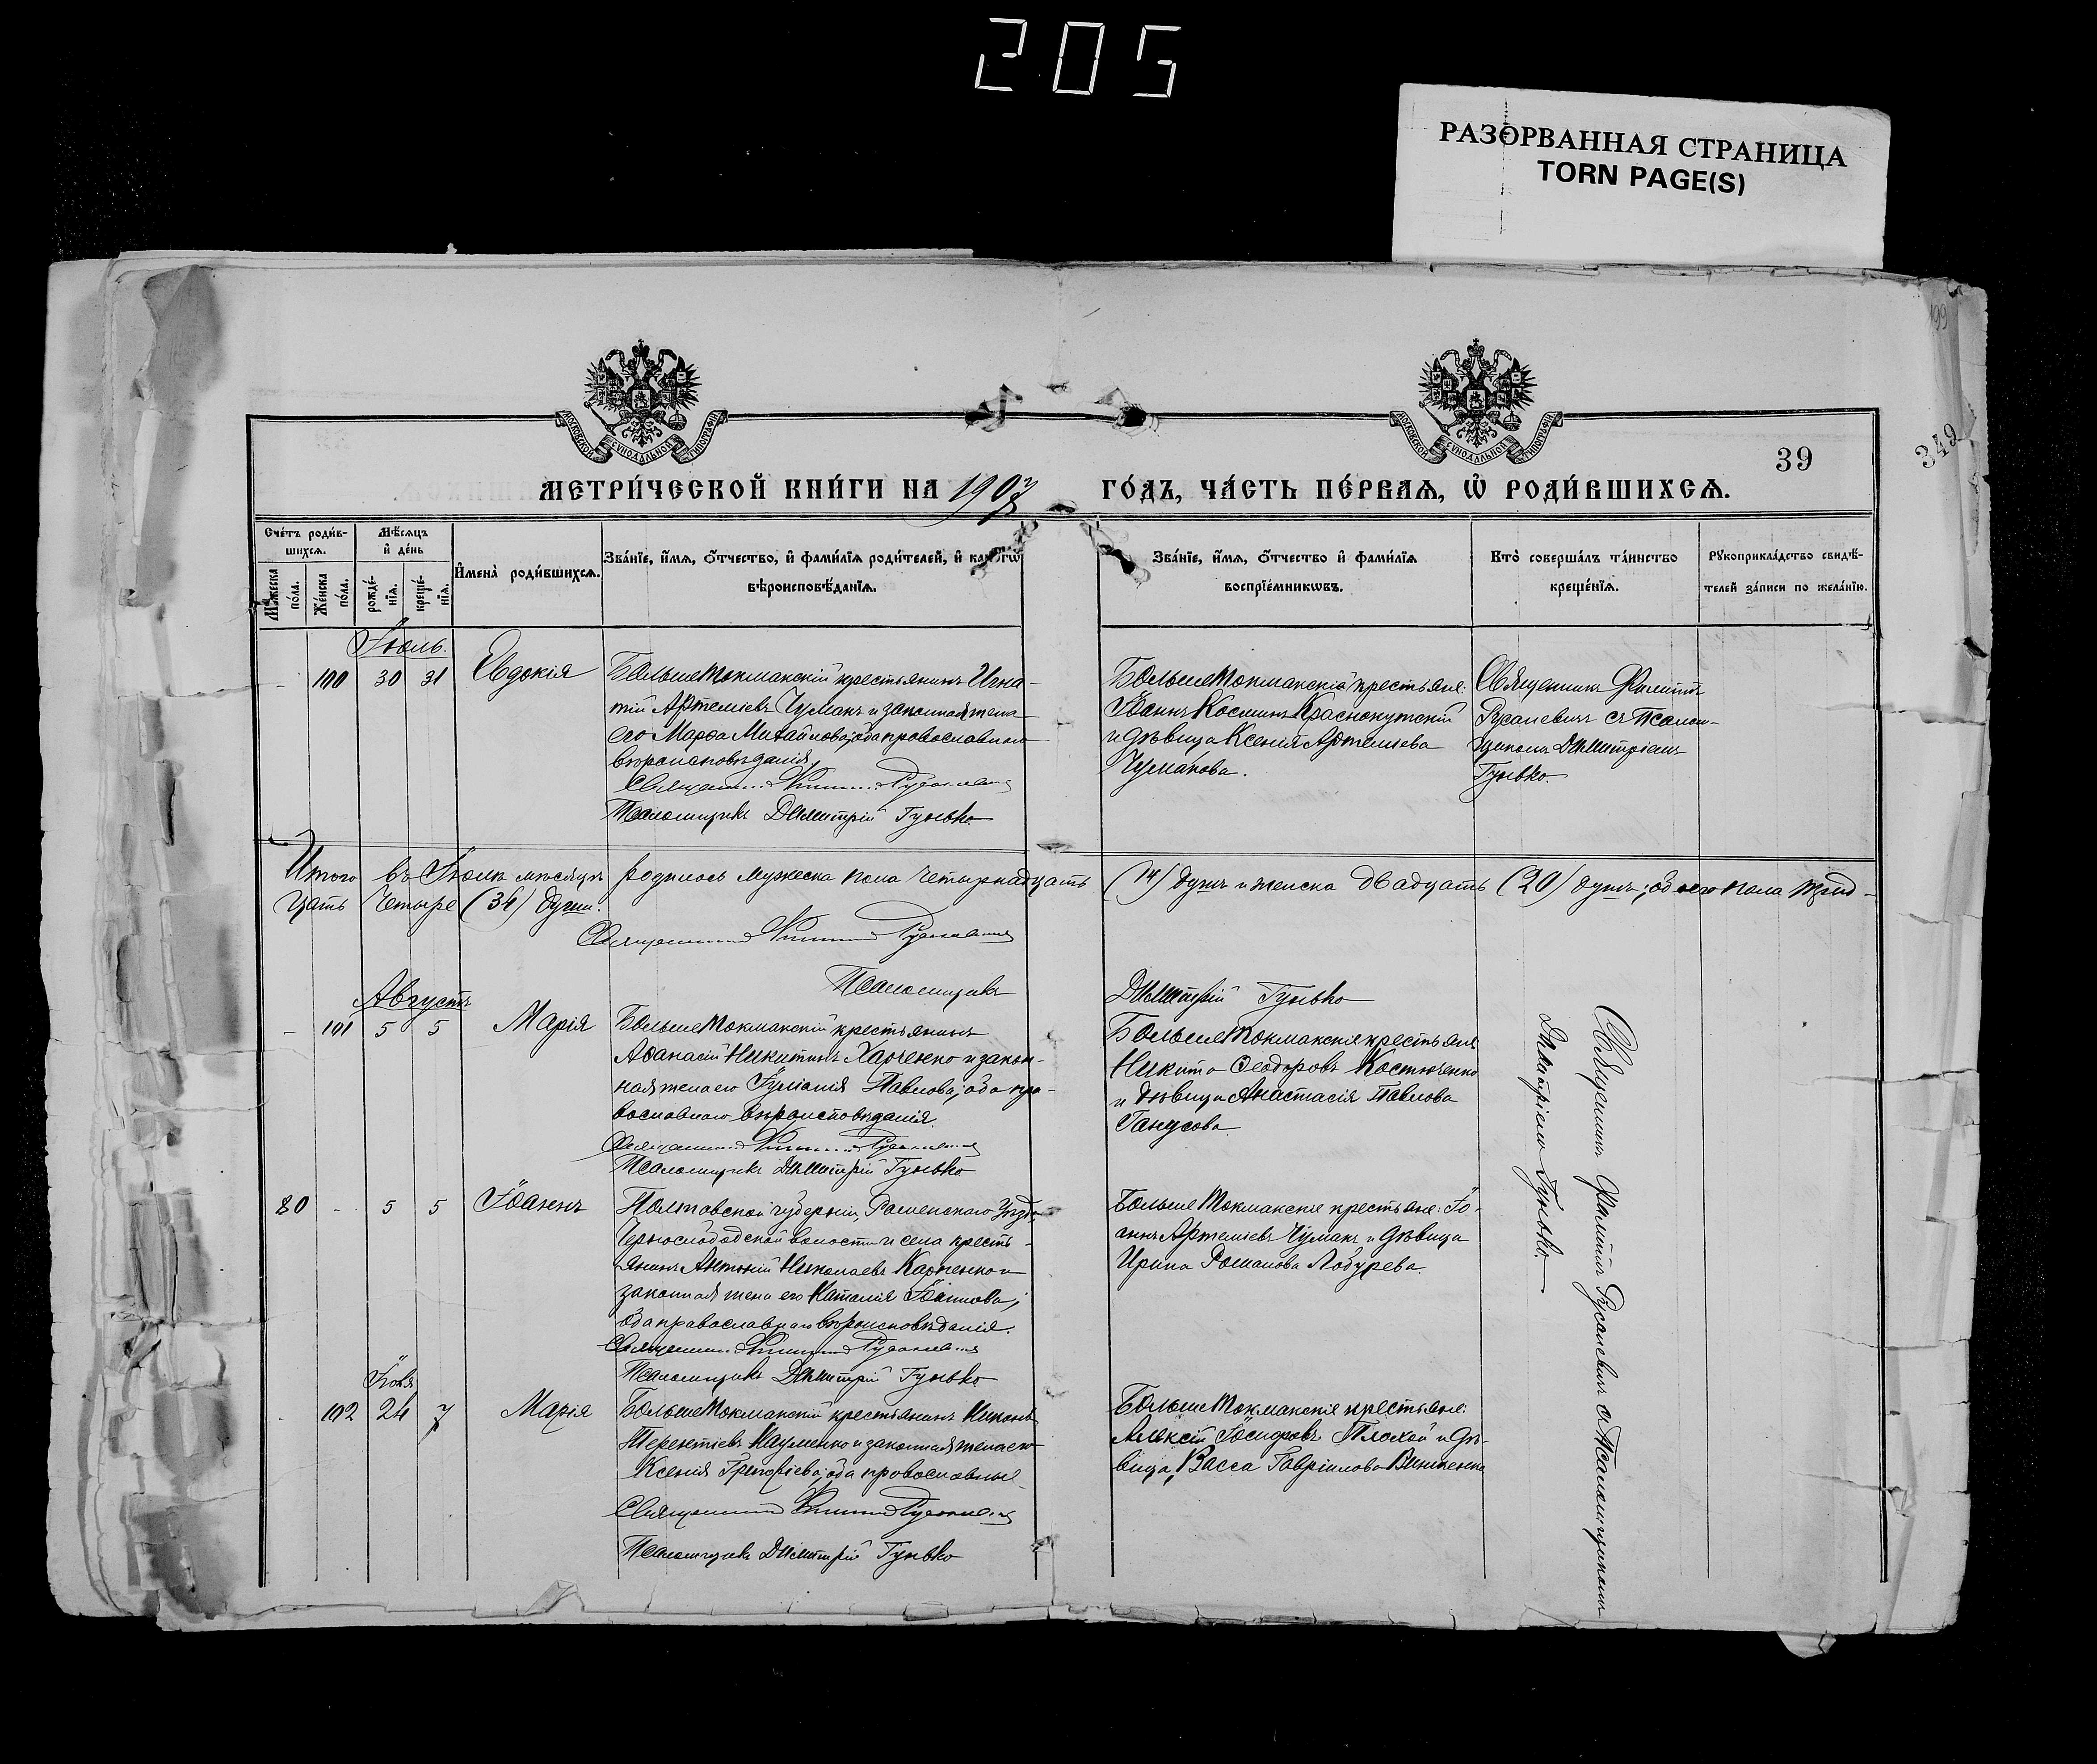 205
РАЗОРВАННАЯ СТРАНИЦА
TORN PAGE(S)
199
349
39
МОСКОВСКОЙ СѴНОДАЛЬНОЙ ТИПОГРАФІИ
МОСКОВСКОЙ СѴНОДАЛЬНОЙ ТИПОГРАФІИ
МЕТРИ́ЧЕСКОЙ КНИ́ГИ НА 1907 ГО́ДЪ, ЧА́СТЬ ПЕ́РВАѦ, Ѡ҆ РОДИ́ВШИХСѦ.
Сче́тъ роди́в-
шихсѧ.
Мѣ́сѧцъ
и҆ де́нь
Мꙋ́жеска по́ла.
Же́нска по́ла.
рожде́-
нїѧ.
креще́-
нїѧ.
И҆мена̀ роди́вшихсѧ.
Зва́нїе, и҆́мѧ, ѻ҆́тчество, и҆ фами́лїѧ роди́телей, и҆ како́гѡ
вѣроисповѣ́данїѧ.
Зва́нїе, и҆́мѧ, ѻ҆́тчество и҆ фами́лїѧ
воспрїе́мникѡвъ.
Кто̀ соверша́лъ та́инство
креще́нїѧ.
Рꙋкоприкла́дство свидѣ́-
телей за́писи по жела́нїю.
Іюль.
- 100 30 31 Евдокія
БольшеТокмакскій крестьянинъ Игна-
тій Артеміевъ Чумакъ и законная жена
его Марѳа Михайлова; оба православнаго
вѣроисповѣданія.
Священникъ Филиппъ
Псаломщикъ Димитрій Гунько
БольшеТокмакскіе крестьяне:
Іоаннъ Косминъ Краснокутскій
и дѣвица Ксенія Артеміева
Чумакова.
Священникъ Филиппъ
Русаневичъ съ Псалом-
щикомъ Димитріемъ
Гунько.
Итого въ Іюлѣ мѣсяцѣ родилось мужеска пола четырнадцать (14) душъ и женска двадцать (20) душъ; обоего пола трид-
цать четыре (34) души.
Священникъ Филиппъ
Псаломщикъ Димитрій Гунько
Августъ
- 101 5 5 Марія
БольшеТокмакскій крестьянинъ
Аѳанасій Никитинъ Харченко и закон-
ная жена его Іуліанія Павлова; оба пра-
вославнаго вѣроисповѣданія.
Священникъ Филиппъ
Псаломщикъ Димитрій Гунько
БольшеТокмакскіе крестьяне
Никита Ѳеодоровъ Костюченко
и дѣвица Анастасія Павлова
Ганусова
Священникъ Филиппъ Русаневичъ съ Псаломщикомъ
Димитріемъ Гунько.
80 - 5 5 Іоаннъ
Полтавской губерніи, Роменскаго уѣзда,
волости и села кресть-
янинъ Антоній Николаевъ Карпенко и
законная жена его Наталія Іоаннова;
оба православнаго вѣроисповѣданія.
Священникъ Филиппъ
Псаломщикъ Димитрій Гунько
БольшеТокмакскіе крестьяне: Іо-
аннъ Артеміевъ Чумакъ и дѣвица
Ирина Романова Лобурева.
Іюля
- 102 24 7 Марія
БольшеТокмакскій крестьянинъ Никонъ
Терентіевъ Науменко и законная жена его
Ксенія Григоріева; оба православные
Священникъ Филиппъ
Псаломщикъ Димитрій Гунько
БольшеТокмакскіе крестьяне:
Алексій Исидоровъ Плохой и дѣ-
вица Васса Гавріилова Винниченко